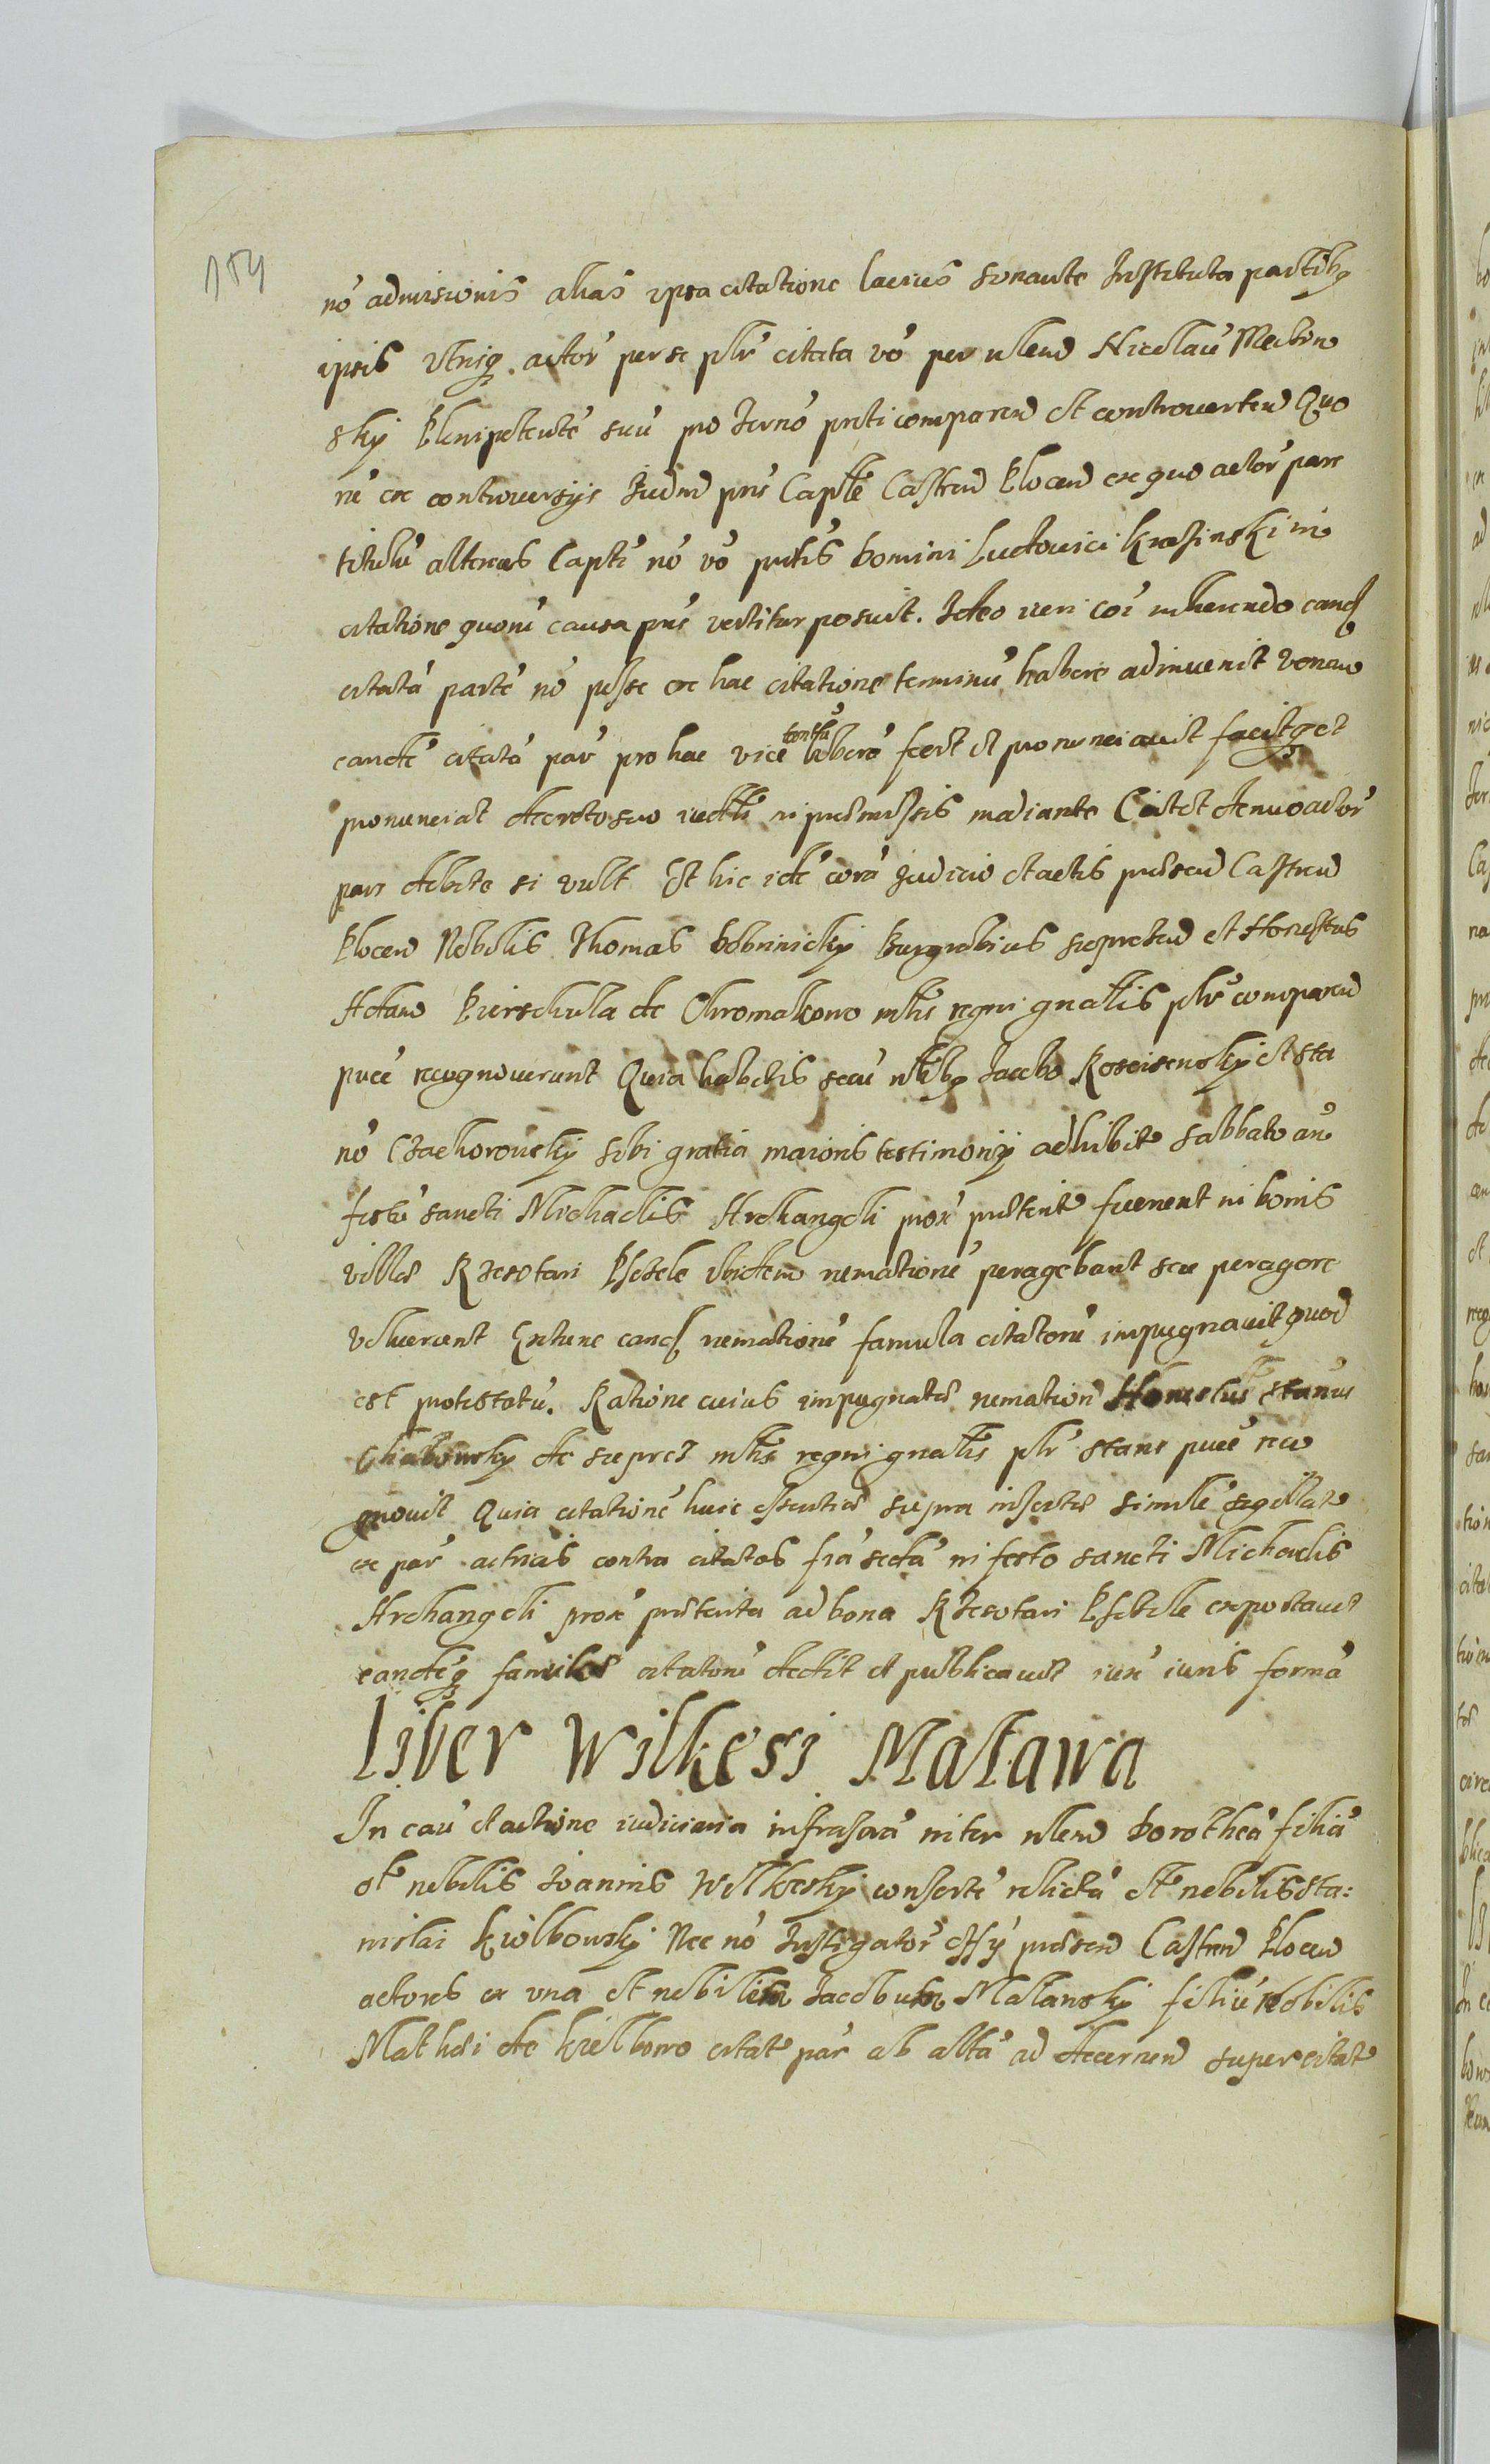 154
no admisionis alias ipsa citatione lacius sonante Instituta partibq
ipsis Utrisq. actor per se plr citata vo per nlem Nicolau Mecbino
sky Plenipotente suu pro Termo pnti comparen et controverten Quo
ru ex controversys Iudm pns Caple Castren Plocen ex quo actor pars
titulu alterius Capti no vo pntis Domini Ludovici Krasinski in
citatione quoru causa pns vertitur posuit. Ideo iuri coi inherendo eand
citata parte no posse ex hac citatione terminu habere adinvenit
eande citata par pro hac vice libera fecit et pronunciavit facitq et
pronunciat decreto suo in premissis mediante Citet denuo actor
pars debite si vult Et hic ide cora Iudicio et actis presen Castren
Plocen Nobilis Thomas Dobrnicky Burgrabius supreten et Honestus
Adam de Chromakowo mlis regni gnalis plr comparen
puce recognoverunt Quia habitis secu nlibq Iacobo Kosciensky et Sta
no Czachorowsky sibi gratia maioris testimony adhibite sabbato an
festu sancti Michaelis Archangeli prox preterite fuerunt in bonis
villae Rzesotari Psetele ibidem remationem peragebant seu peragere
voluerunt Extunc eand remationem famula citatoru impugnavit quod
est protestatu. Ratione cuius impugnatae remation Honestus stanus
de supres mlis regni gnalis plr stans puce reco
gnovit Quia citatione huic sentiae supra insertae simile sigillate
ex par actricis contra citatos fia secda in festo sancti Michaelis
Archangeli prox preterita ad bona Rzesotari Psetele exportavit
eandeq famulae citatoru dedit et publicavit iux iuris forma
Liber Wilkesi Malawa
In cau et actione iudiciaria infrascra inter nlem Dorothea filia
ol nobilis Ioannis Wilkesky consorte relicta ol nobilis Sta:
nislai Kiolbowsky Nec no Instigator offy presen Castren Plocen
actores ex una et nobilem Iacobum Malawsky filiu nobilis
Mathei de Kielbowo citate par ab alta ad decernen super citate